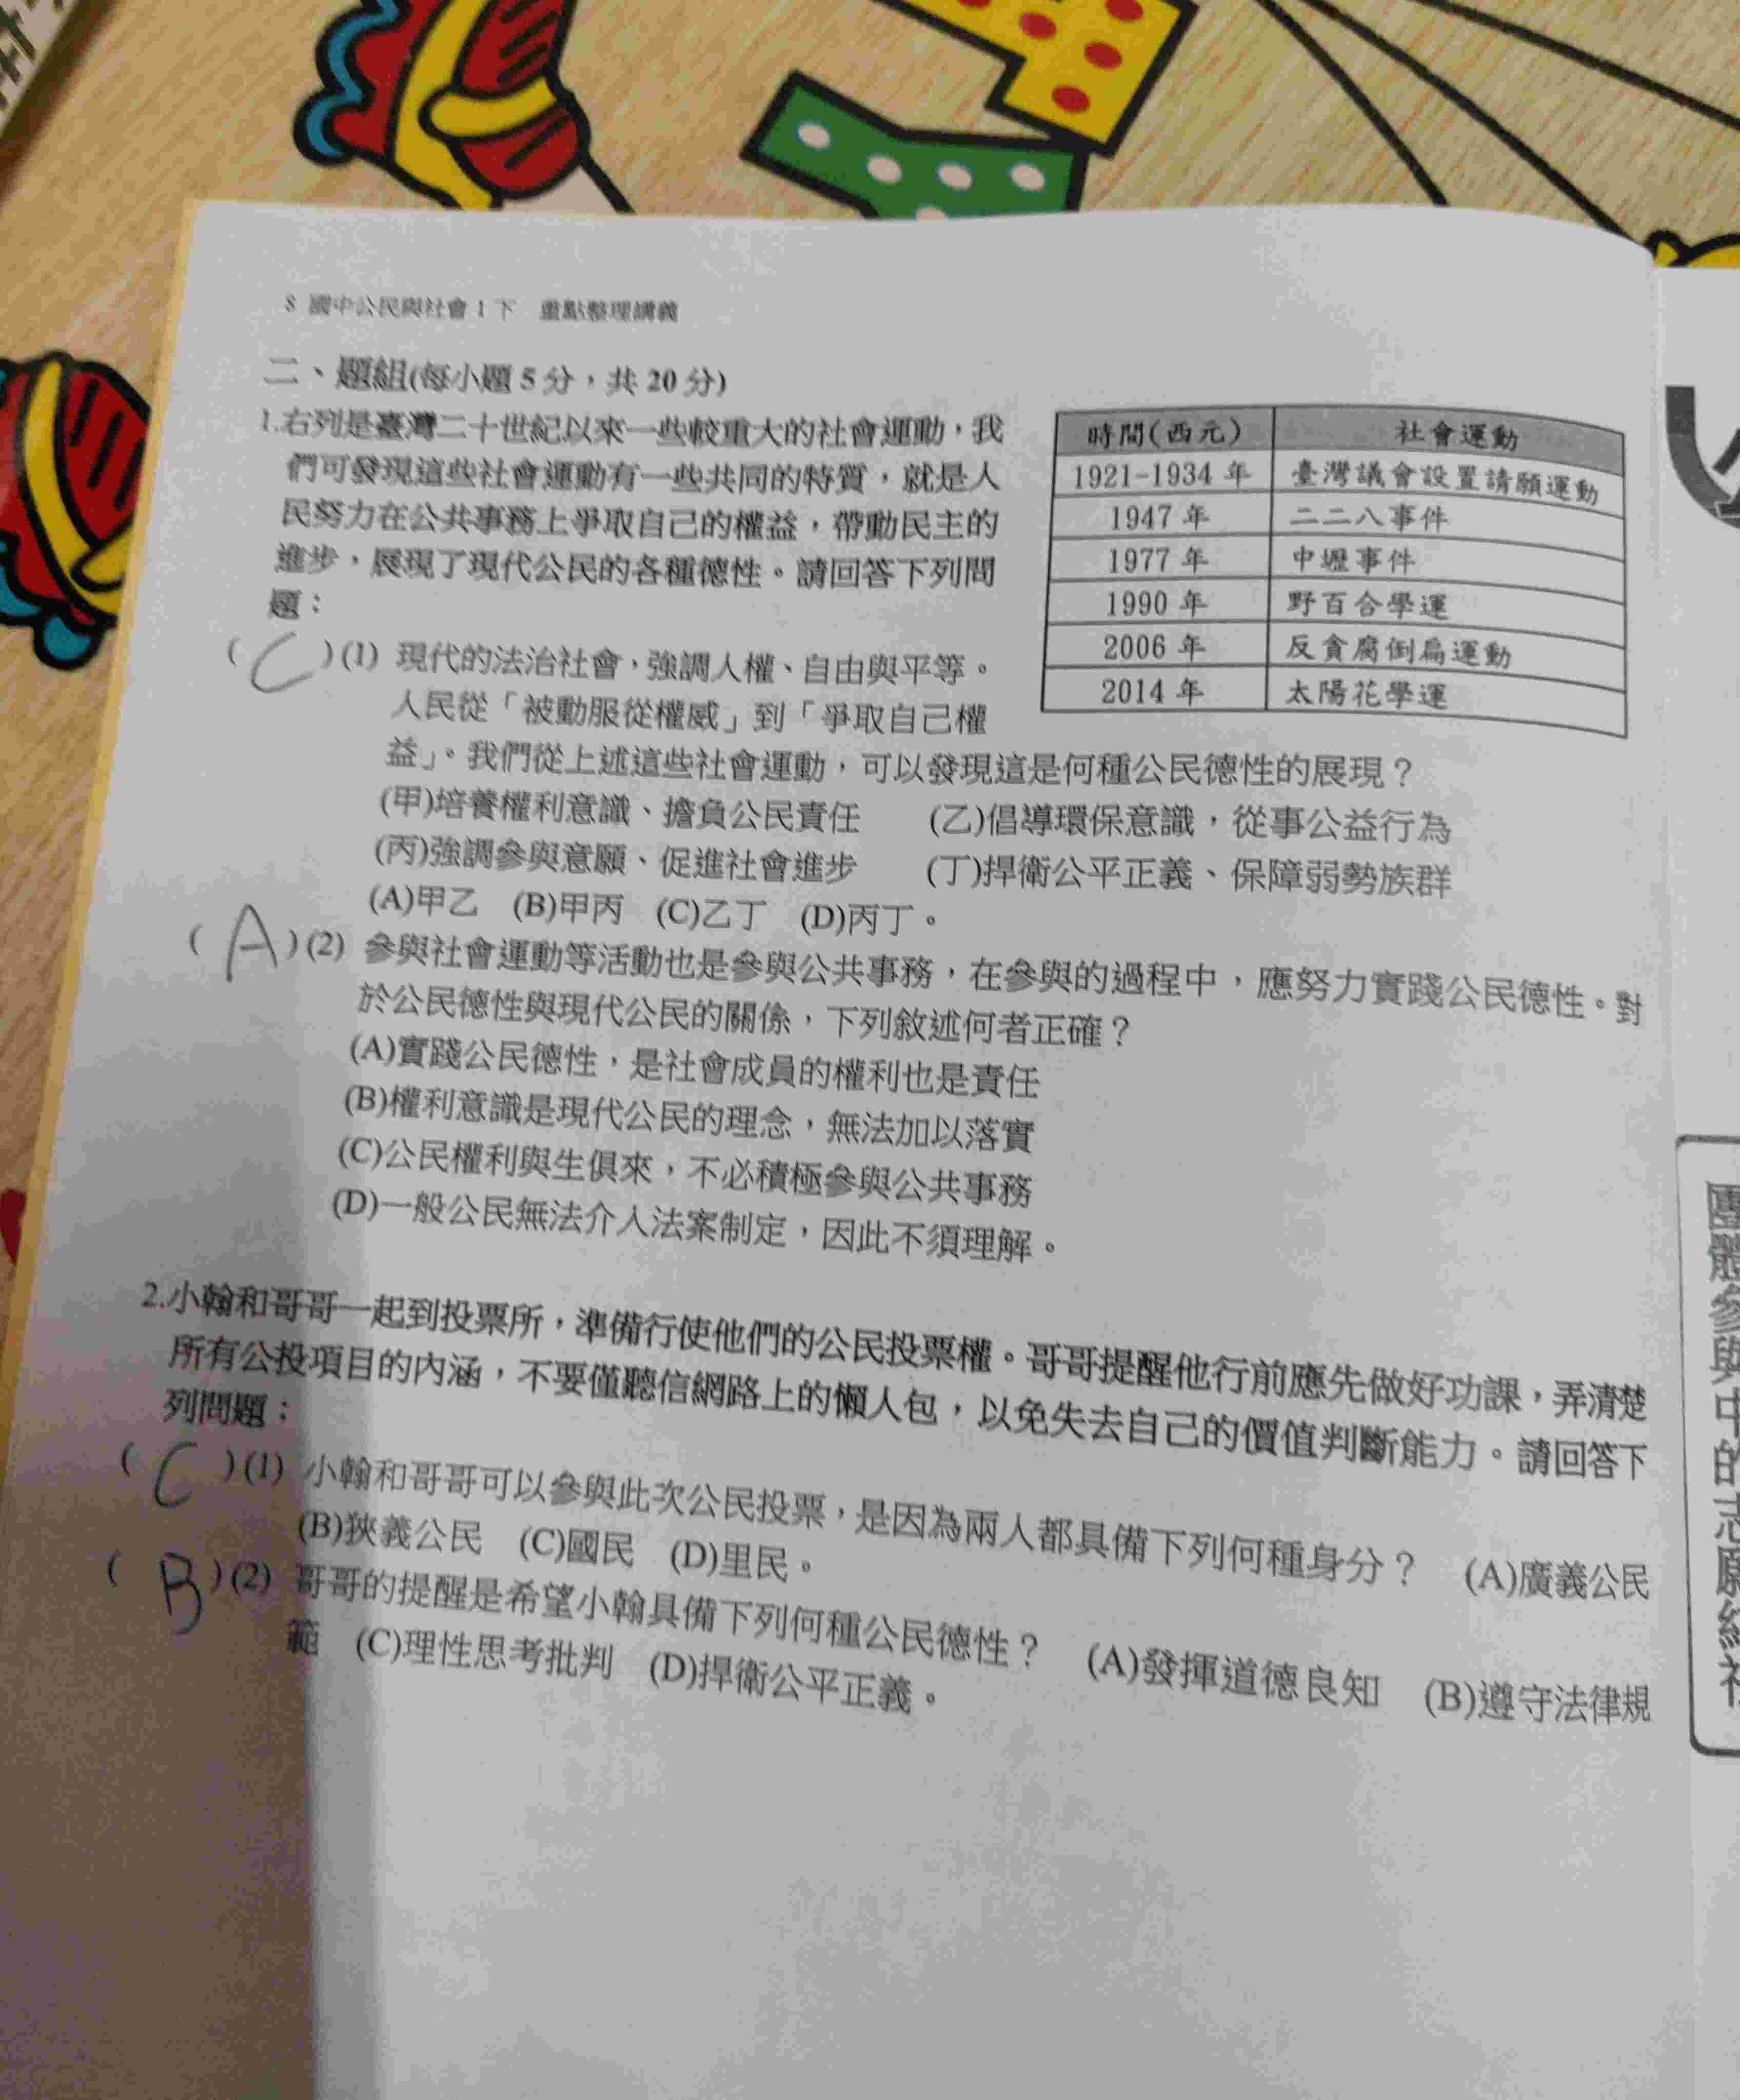 8 國中公民與社會1下 重點整理講義
二、題組(每小題5分，共20分)
1.右列是臺灣二十世紀以來一些較重大的社會運動，我
們可發現這些社會運動有一些共同的特質，就是人
民努力在公共事務上爭取自己的權益，帶動民主的
進步，展現了現代公民的各種德性。請回答下列問
題：
時間(西元) 社會運動
1921-1934年 臺灣議會設置請願運動
1947年 二二八事件
1977年 中壢事件
1990年 野百合學運
2006年 反貪腐倒扁運動
2014年 太陽花學運
( C )(1) 現代的法治社會，強調人權、自由與平等。
人民從「被動服從權威」到「爭取自己權
益」。我們從上述這些社會運動，可以發現這是何種公民德性的展現？
(甲)培養權利意識、擔負公民責任 (乙)倡導環保意識，從事公益行為
(丙)強調參與意願、促進社會進步 (丁)捍衛公平正義、保障弱勢族群
(A)甲乙 (B)甲丙 (C)乙丁 (D)丙丁。
( A )(2) 參與社會運動等活動也是參與公共事務，在參與的過程中，應努力實踐公民德性。對
於公民德性與現代公民的關係，下列敘述何者正確？
(A)實踐公民德性，是社會成員的權利也是責任
(B)權利意識是現代公民的理念，無法加以落實
(C)公民權利與生俱來，不必積極參與公共事務
(D)一般公民無法介入法案制定，因此不須理解。
2.小翰和哥哥一起到投票所，準備行使他們的公民投票權。哥哥提醒他行前應先做好功課，弄清楚
所有公投項目的內涵，不要僅聽信網路上的懶人包，以免失去自己的價值判斷能力。請回答下
列問題：
( C )(1) 小翰和哥哥可以參與此次公民投票，是因為兩人都具備下列何種身分？ (A)廣義公民
(B)狹義公民 (C)國民 (D)里民。
( B )(2) 哥哥的提醒是希望小翰具備下列何種公民德性？ (A)發揮道德良知 (B)遵守法律規
範 (C)理性思考批判 (D)捍衛公平正義。
團體參與中的志願結社